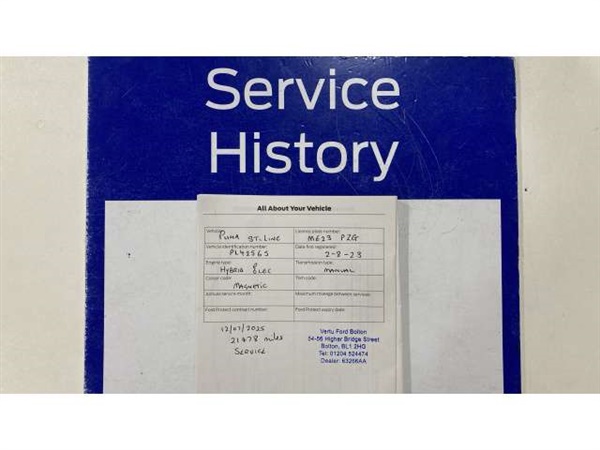 Service
History
All About Your Vehicle
Vehicle: Licence plate number:
PUMA ST-LINE ME23 PZG
Vehicle identification number: Date first registered:
PL42565 2-8-23
Engine type: Transmission type:
HYBRID ELEC MANUAL
Colour code: Trim code:
MAGNETIC
Annual service month: Maximum mileage between services:
Ford Protect contract number: Ford Protect expiry date:
12/07/2025
21478 miles
SERVICE
Vertu Ford Bolton
54-56 Higher Bridge Street
Bolton, BL1 2HG
Tel: 01204 524474
Dealer: 63256AA